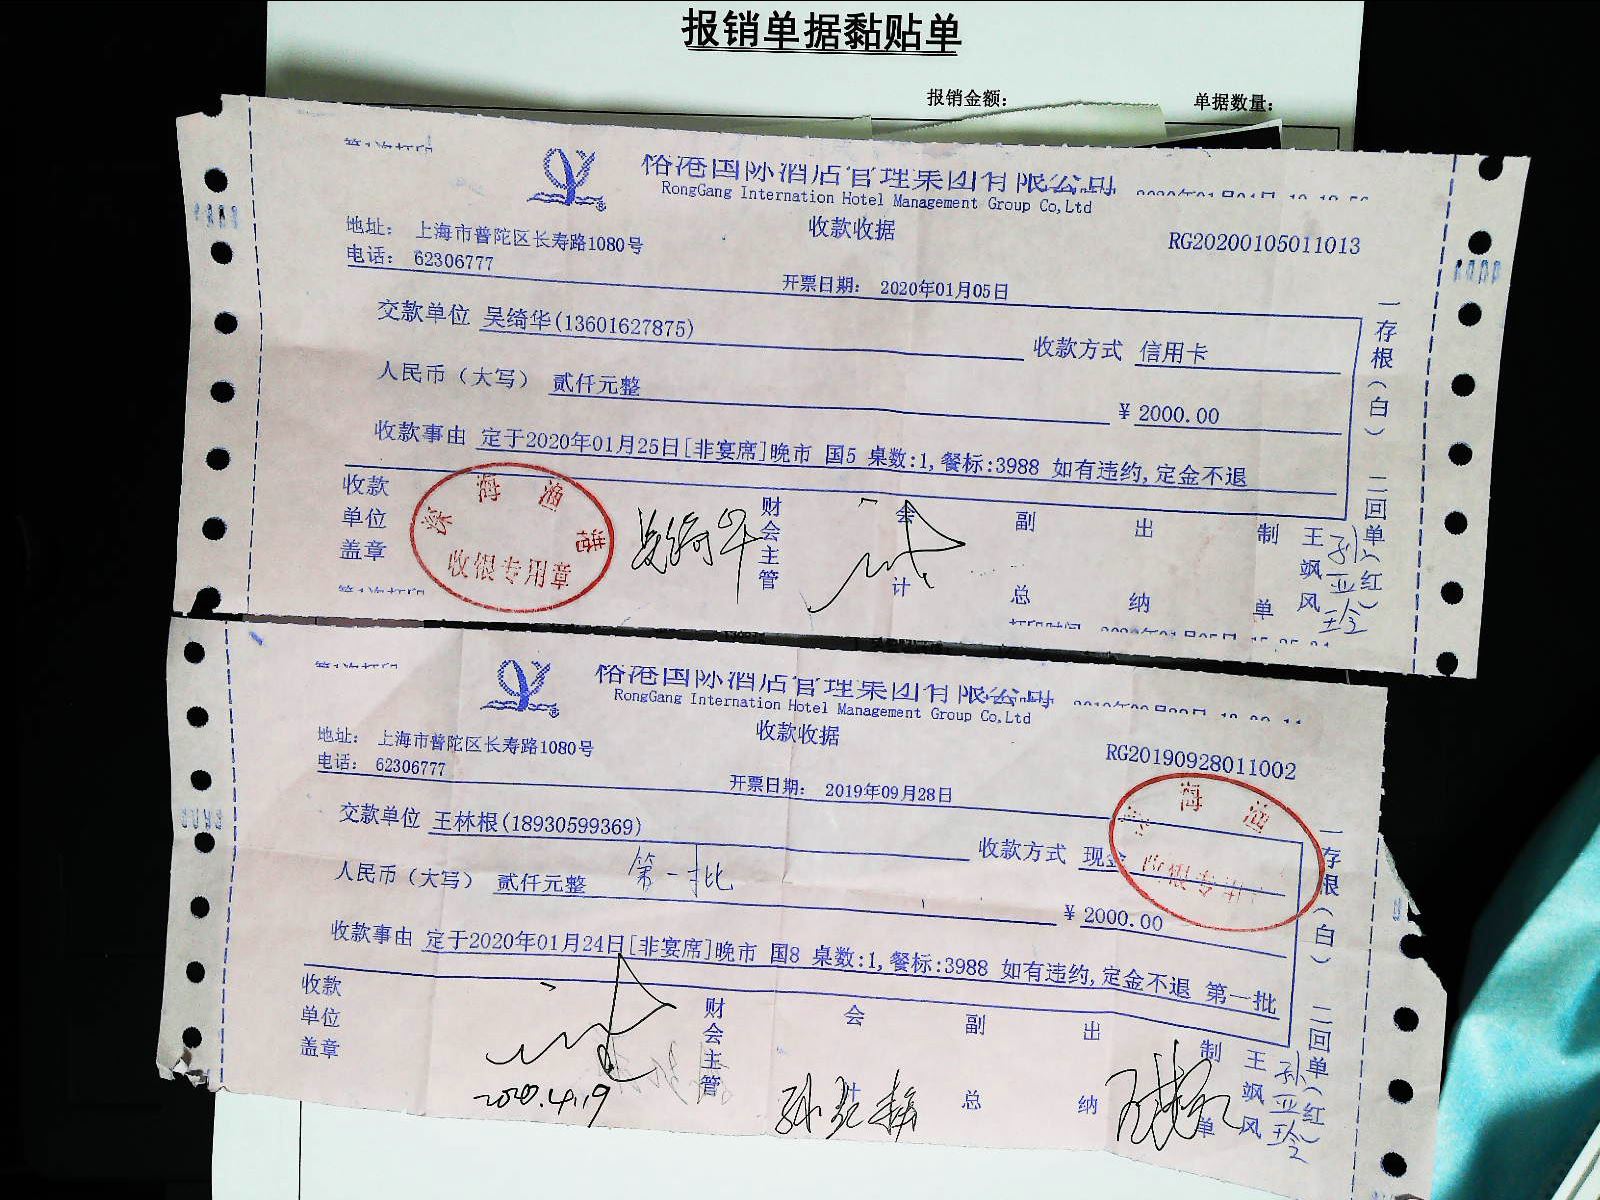 报销单据黏贴单
报销金额： 单据数量：
第1次打印
裕港国际酒店管理集团有限公司
RongGang International Hotel Management Group Co,Ltd
收款收据
地址： 上海市普陀区长寿路1080号
RG20200105011013
电话： 62306777
开票日期： 2020年01月05日
交款单位 吴绮华(13601627875)
收款方式 信用卡
人民币（大写） 贰仟元整
¥ 2000.00
收款事由 定于2020年01月25日[非宴席]晚市 国5 桌数:1,餐标:3988 如有违约,定金不退
一存根（白） 二回单（红）
收款单位盖章
深海渔
收银专用章
吴绮华
财会主管
会计
副总
出纳
制单
王飒风
孙亚玲
第1次打印
打印时间
第1次打印
裕港国际酒店管理集团有限公司
RongGang International Hotel Management Group Co,Ltd
收款收据
地址： 上海市普陀区长寿路1080号
RG20190928011002
电话： 62306777
开票日期： 2019年09月28日
海渔
交款单位 王林根(18930599369)
收款方式 现金
人民币（大写） 贰仟元整 第一批
¥ 2000.00
收款事由 定于2020年01月24日[非宴席]晚市 国8 桌数:1,餐标:3988 如有违约,定金不退 第一批
一存根（白） 二回单（红）
收款单位盖章
2020.4.19
财会主管
会计
副总
出纳
制单
王飒风
孙亚玲